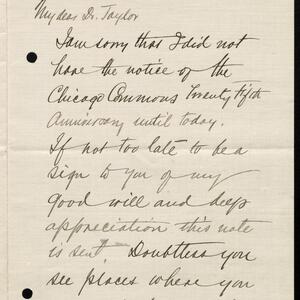 My dear Dr. Taylor
I am sorry that I did not
have the notice of the
Chicago Commons Twenty Fifth
Anniversary until today.
If not too late to be a
sign to you of my
good will and deep
appreciation this note
is sent. Doubtless you
see places where you